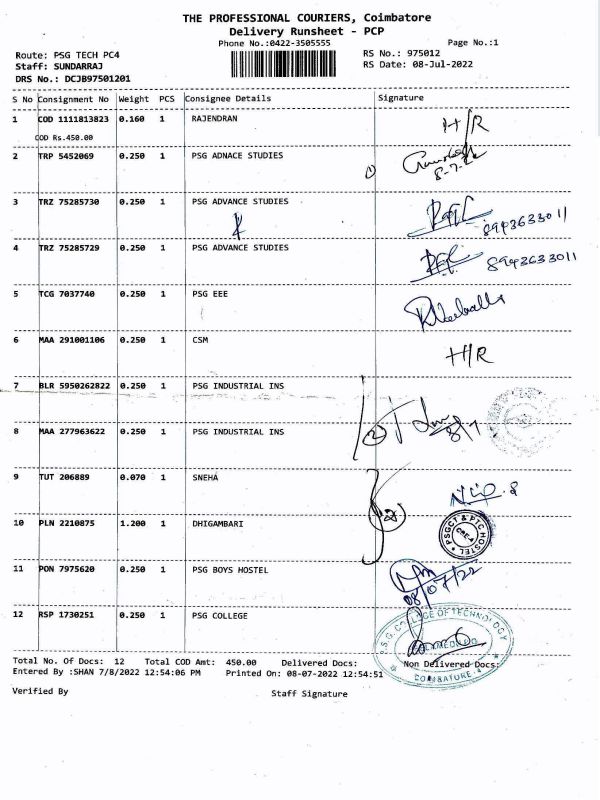 THE PROFESSIONAL COURIERS, Coimbatore
Delivery Runsheet - PCP
Phone No.:0422-3505555
Page No.:1
Route: PSG TECH PC4
RS No.: 975012
Staff: SUNDARRAJ
RS Date: 08-Jul-2022
DRS No.: DCJB97501201
S No Consignment No Weight PCS Consignee Details Signature
1 COD 1111813823 0.160 1 RAJENDRAN H/R
COD Rs.450.00
2 TRP 5452069 0.250 1 PSG ADNACE STUDIES
1
3 TRZ 75285730 0.250 1 PSG ADVANCE STUDIES
8943633011
4 TRZ 75285729 0.250 1 PSG ADVANCE STUDIES
8943633011
5 TCG 7037740 0.250 1 PSG EEE
6 MAA 291001106 0.250 1 CSM
H/R
7 BLR 5950262822 0.250 1 PSG INDUSTRIAL INS
2
8 MAA 277963622 0.250 1 PSG INDUSTRIAL INS
9 TUT 206889 0.070 1 SNEHA
2
10 PLN 2210875 1.200 1 DHIGAMBARI
PSGCT & PTC HOSTEL
11 PON 7975620 0.250 1 PSG BOYS HOSTEL
08/07/22
12 RSP 1730251 0.250 1 PSG COLLEGE
P.S.G. COLLEGE OF TECHNOLOGY
COIMBATORE
Total No. Of Docs: 12 Total COD Amt: 450.00 Delivered Docs: Non Delivered Docs:
Entered By :SHAN 7/8/2022 12:54:06 PM Printed On: 08-07-2022 12:54:51
Verified By Staff Signature